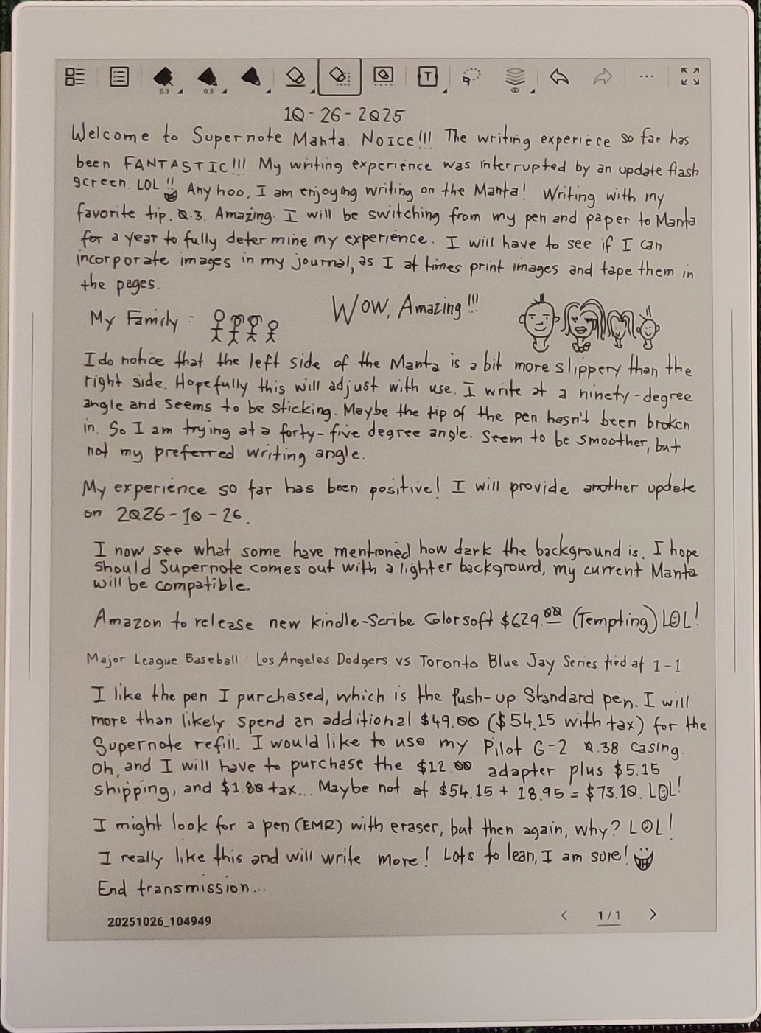 0.3 0.5 T
10-26-2025
Welcome to Supernote Manta. Noice!!! The writing experiece so far has
been FANTASTIC!!! My writing experience was interrupted by an update flash
screen. LOL!! Any hoo, I am enjoying writing on the Manta! Writing with my
favorite tip. 0.3. Amazing. I will be switching from my pen and paper to Manta
for a year to fully determine my experience. I will have to see if I can
incorporate images in my journal, as I at times print images and tape them in
the pages.
My Family : Wow, Amazing!!!
I do notice that the left side of the Manta is a bit more slippery than the
right side. Hopefully this will adjust with use. I write at a ninety-degree
angle and seems to be sticking. Maybe the tip of the pen hasn't been broken
in. So I am trying at a forty-five degree angle. Seem to be smoother, but
not my preferred writing angle.
My experience so far has been positive! I will provide another update
on 2026-10-26.
I now see what some have mentioned how dark the background is. I hope
should Supernote comes out with a lighter background, my current Manta
will be compatible.
Amazon to release new kindle-Scribe Colorsoft $629.00 (Tempting) LOL!
Major League Baseball: Los Angeles Dodgers vs Toronto Blue Jay Series tied at 1-1
I like the pen I purchased, which is the Push-up Standard pen. I will
more than likely spend an additional $49.00 ($54.15 with tax) for the
Supernote refill. I would like to use my Pilot G-2 0.38 casing.
Oh, and I will have to purchase the $12.00 adapter plus $5.15
shipping, and $1.80 tax... Maybe not at $54.15 + 18.95 = $73.10. LOL!
I might look for a pen (EMR) with eraser, but then again, why? LOL!
I really like this and will write more! Lots to lean, I am sure!
End transmission...
20251026_104949 < 1/1 >